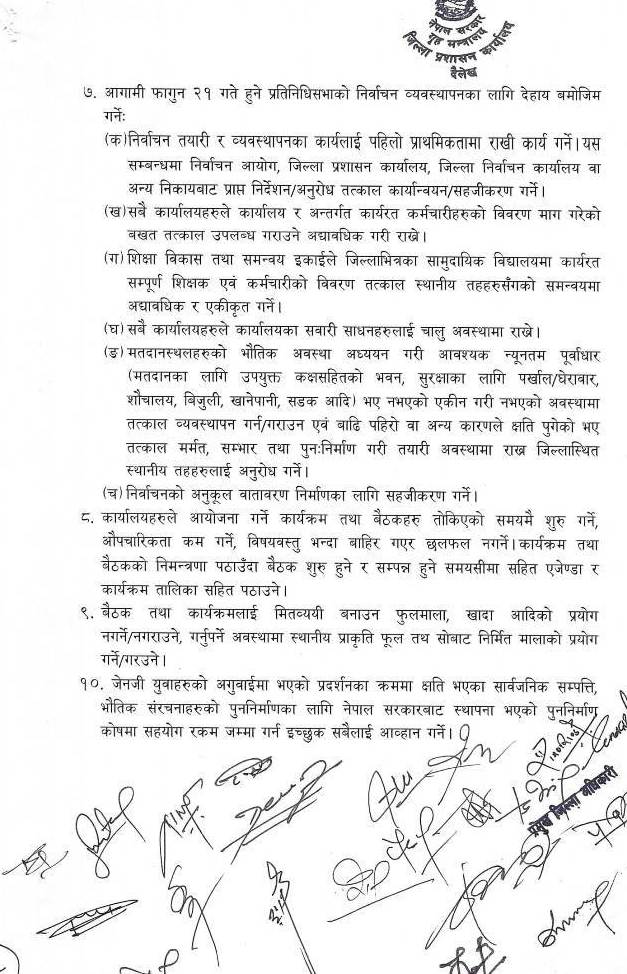 नेपाल सरकार
गृह मन्त्रालय
जिल्ला प्रशासन कार्यालय
दैलेख
७. आगामी फागुन २१ गते हुने प्रतिनिधिसभाको निर्वाचन व्यवस्थापनका लागि देहाय बमोजिम
गर्नेः
(क)निर्वाचन तयारी र व्यवस्थापनका कार्यलाई पहिलो प्राथमिकतामा राखी कार्य गर्ने। यस
सम्बन्धमा निर्वाचन आयोग, जिल्ला प्रशासन कार्यालय, जिल्ला निर्वाचन कार्यालय वा
अन्य निकायबाट प्राप्त निर्देशन/अनुरोध तत्काल कार्यान्वयन/सहजीकरण गर्ने।
(ख)सबै कार्यालयहरुले कार्यालय र अन्तर्गत कार्यरत कर्मचारीहरुको विवरण माग गरेको
बखत तत्काल उपलब्ध गराउने अद्यावधिक गरी राख्ने।
(ग)शिक्षा विकास तथा समन्वय इकाईले जिल्लाभित्रका सामुदायिक विद्यालयमा कार्यरत
सम्पूर्ण शिक्षक एवं कर्मचारीको विवरण तत्काल स्थानीय तहहरुसँगको समन्वयमा
अद्यावधिक र एकीकृत गर्ने।
(घ)सबै कार्यालयहरुले कार्यालयका सवारी साधनहरुलाई चालु अवस्थामा राख्ने।
(ङ)मतदानस्थलहरुको भौतिक अवस्था अध्ययन गरी आवश्यक न्यूनतम पूर्वाधार
(मतदानका लागि उपयुक्त कक्षसहितको भवन, सुरक्षाका लागि पर्खाल/घेरावार,
शौचालय, बिजुली, खानेपानी, सडक आदि) भए नभएको एकीन गरी नभएको अवस्थामा
तत्काल व्यवस्थापन गर्न/गराउन एवं बाढि पहिरो वा अन्य कारणले क्षति पुगेको भए
तत्काल मर्मत, सम्भार तथा पुनःनिर्माण गरी तयारी अवस्थामा राख्न जिल्लास्थित
स्थानीय तहहरुलाई अनुरोध गर्ने।
(च)निर्वाचनको अनुकूल वातावरण निर्माणका लागि सहजीकरण गर्ने।
८. कार्यालयहरुले आयोजना गर्ने कार्यक्रम तथा बैठकहरु तोकिएको समयमै शुरु गर्ने,
औपचारिकता कम गर्ने, विषयवस्तु भन्दा बाहिर गएर छलफल नगर्ने। कार्यक्रम तथा
बैठकको निमन्त्रणा पठाउँदा बैठक शुरु हुने र सम्पन्न हुने समयसीमा सहित एजेण्डा र
कार्यक्रम तालिका सहित पठाउने।
९. बैठक तथा कार्यक्रमलाई मितव्ययी बनाउन फुलमाला, खादा आदिको प्रयोग
नगर्ने/नगराउने, गर्नुपर्ने अवस्थामा स्थानीय प्राकृति फूल तथ सोबाट निर्मित मालाको प्रयोग
गर्ने/गरउने।
१०. जेनजी युवाहरुको अगुवाईमा भएको प्रदर्शनका क्रममा क्षति भएका सार्वजनिक सम्पत्ति,
भौतिक संरचनाहरुको पुननिर्माणका लागि नेपाल सरकारबाट स्थापना भएको पुननिर्माण
कोषमा सहयोग रकम जम्मा गर्न इच्छुक सबैलाई आव्हान गर्ने।
प्रमुख जिल्ला अधिकारी